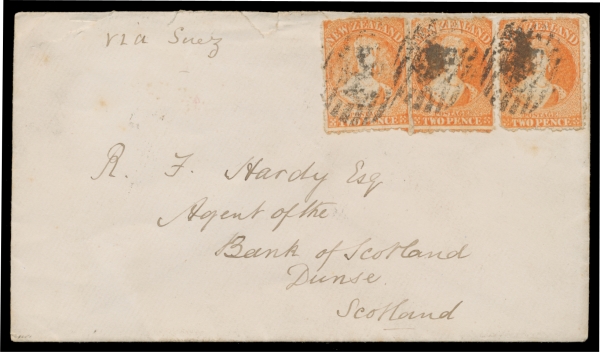 via Suez
NEW ZEALAND
NEW ZEALAND
ZEALAND
TWO PENCE
TWO PENCE
TWO PENCE
R. F. Hardy Esq
Agent of the
Bank of Scotland
Dunse
Scotland